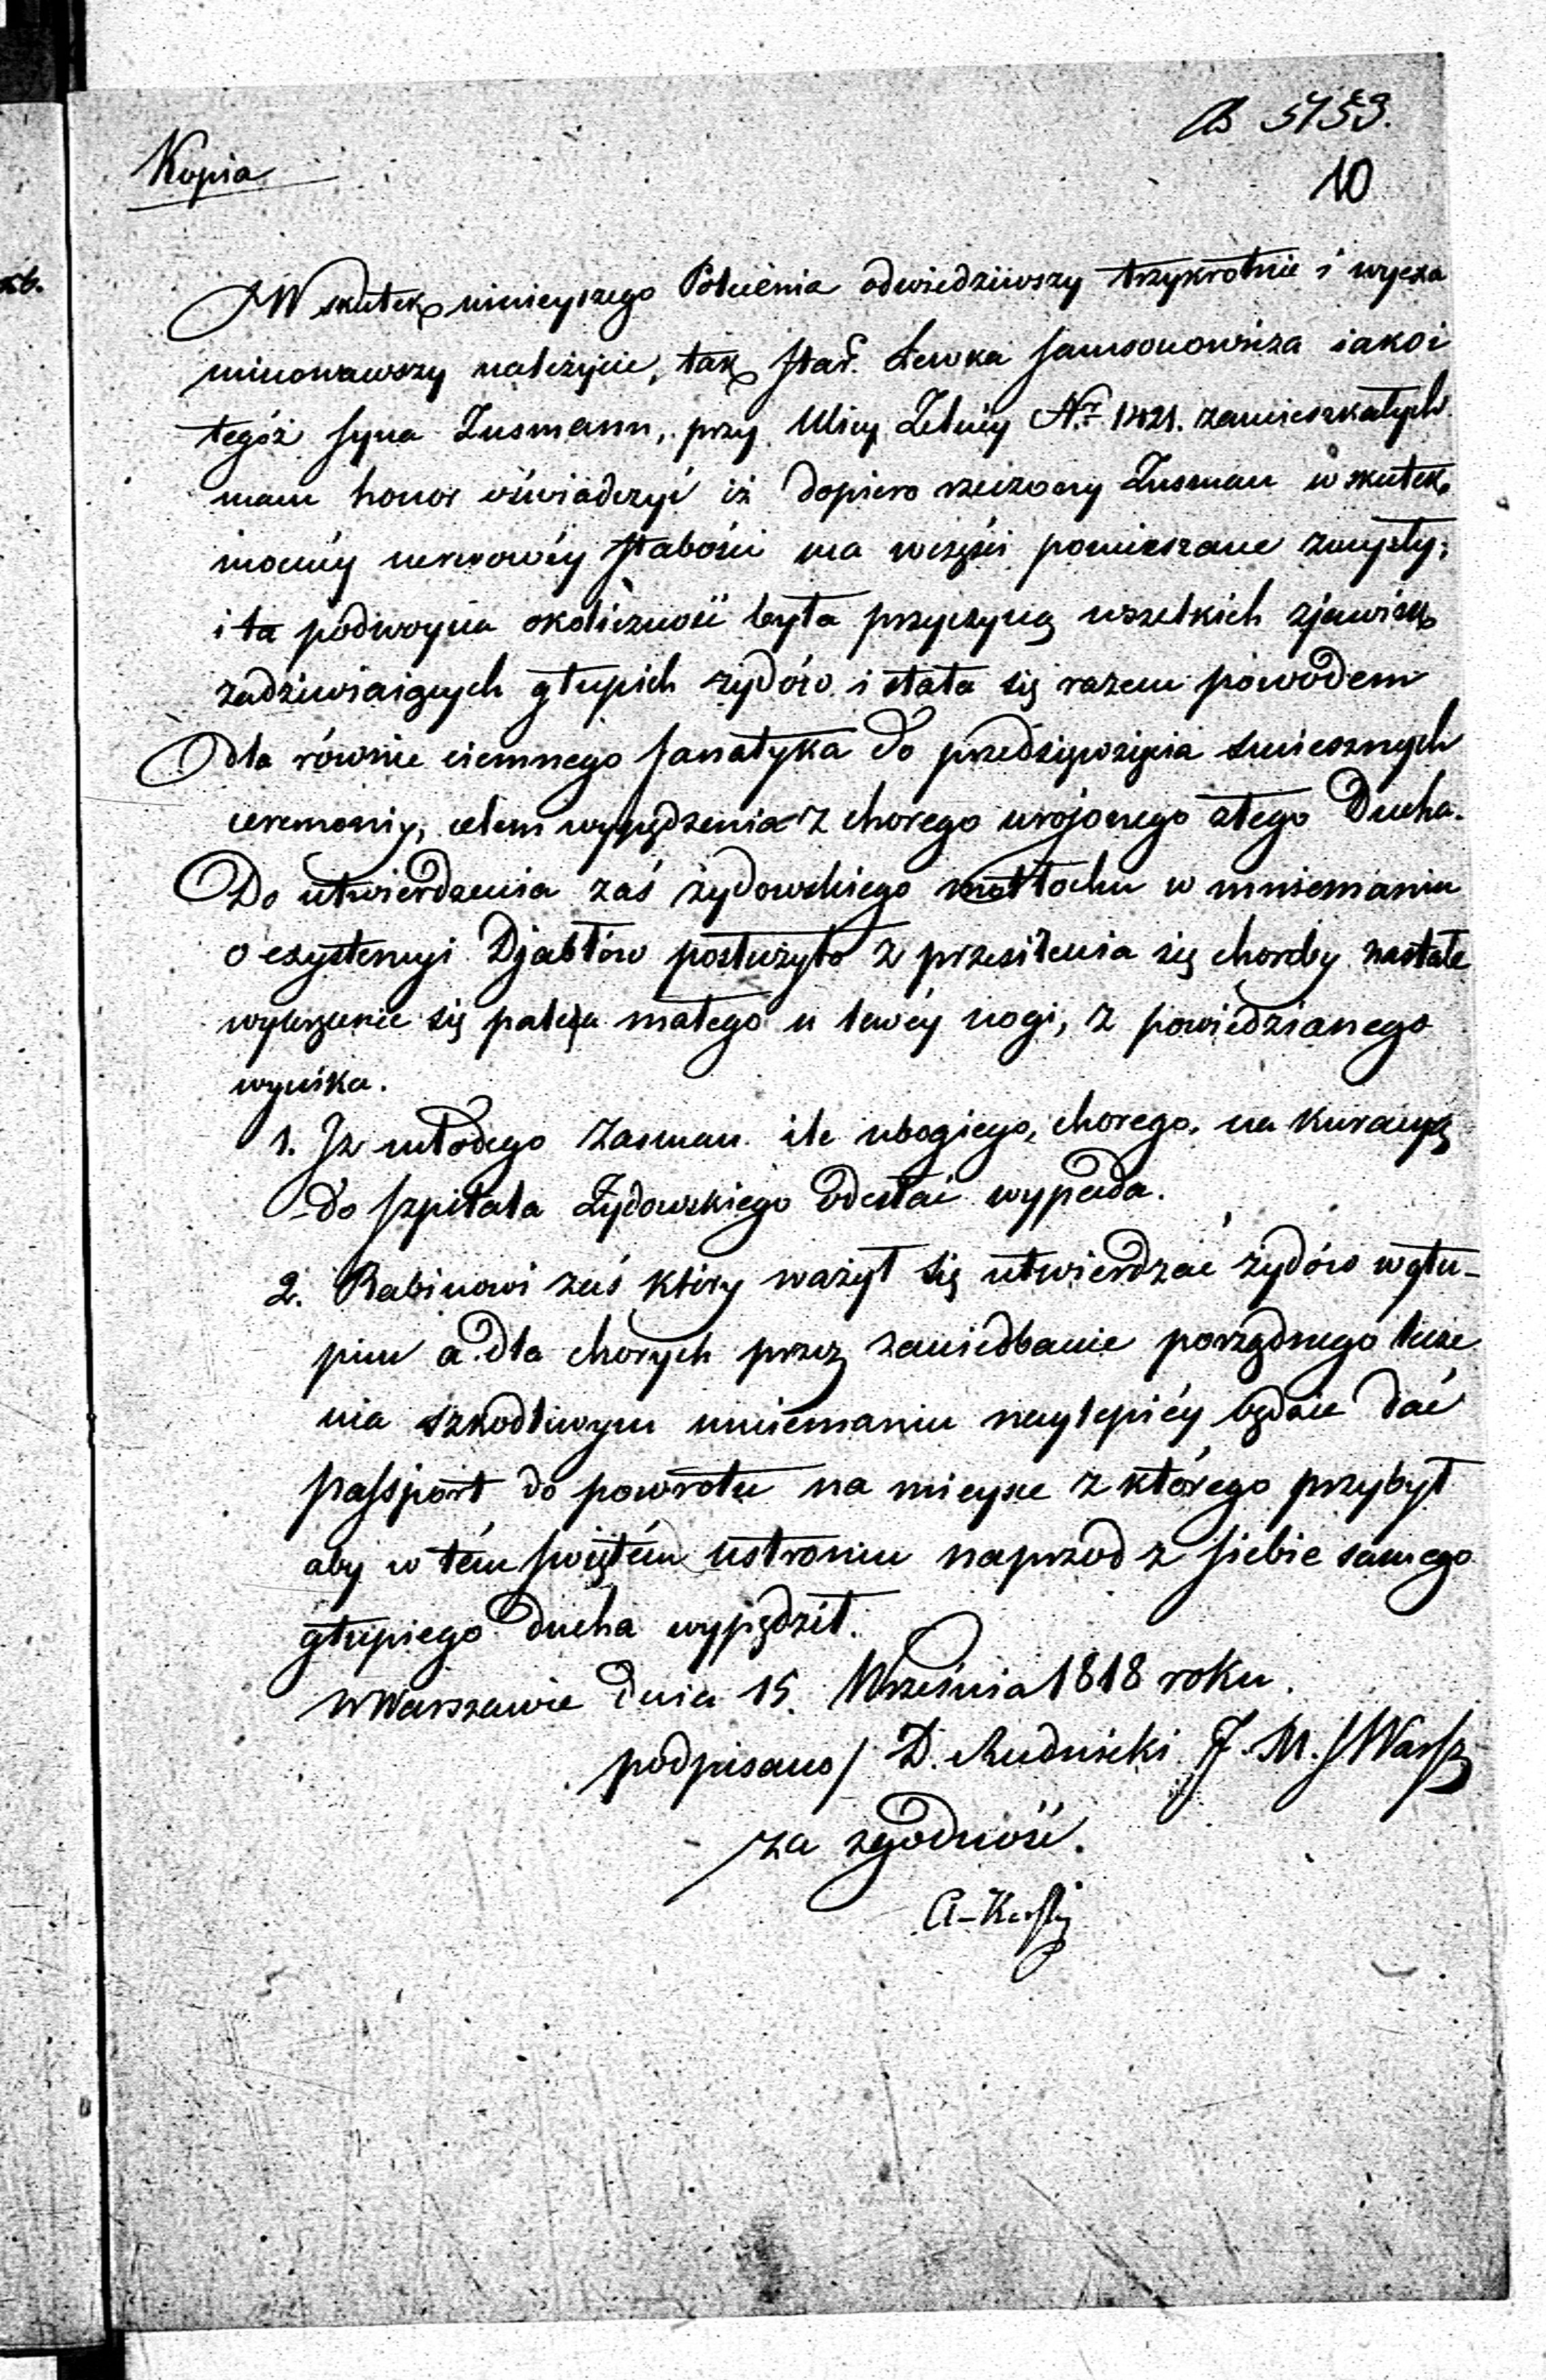 ad 5753.
Kopia
10
W skutek ninieyszego Polecenia odwiedziwszy trzykrotnie i wyexa
minowawszy należycie, tak star. Lewka Samsonowicza iako i
tegóż syna Zusmann, przy Ulicy Zelnéy Nr 1421. zamieszkałych
mam honor oświadczyć iż dopiero rzeczony Zusman w skutek
mocnéy nerwowéy słabości ma wczęści pomieszane zmysły;
i ta podwoyna okoliczność była przyczyną wszelkich zjawisk
zadziwiaiących głupich żydów i stała się razem powodem
dla równie ciemnego fanatyka do przedsięwzięcia smiesznych
ceremoniy, celem wypędzenia z chorego urojonego złego Ducha.
Do utwierdzenia zaś żydowskiego motłochu w mniemaniu
o exystencyi Djabłów posłużyło z przesilenia się choroby nastałe
wykrzywie się palca małego u lewéy nogi, z powiedzianego
wynika.
1. Iż młodego Zusman ile ubogiego, chorego, na kuracyą
do szpitala Żydowskiego odesłać wypada.
2. Rabinowi zaś który ważył się utwierdzać żydów w głu-
pim a dla chorych przez zaniedbanie porządnego lecze
nia szkodliwym mniemaniu naylepiéy będzie dać
passport do powrotu na mieysce z którego przybył
aby w tém świętém ustroniu naprzod z siebie samego
głupiego ducha wypędził.
w Warszawie dnia 15. Września 1818 roku.
podpisano/ D. Rudnicki F. M. Warsz
za zgodność.